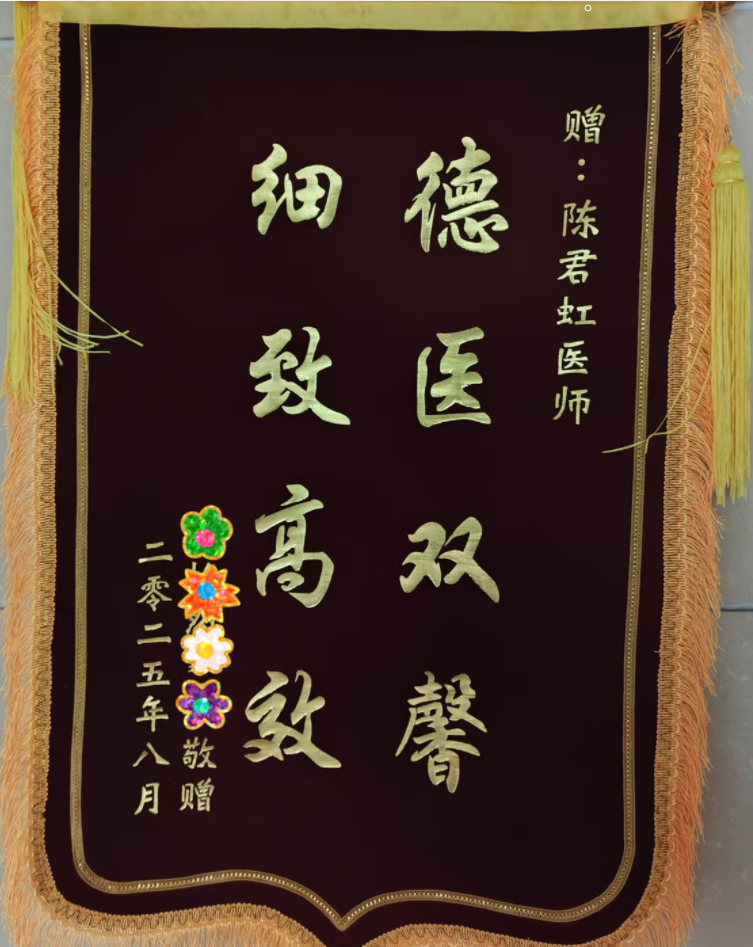 赠：陈君虹医师
德医双馨
细致高效
敬赠
二零二五年八月